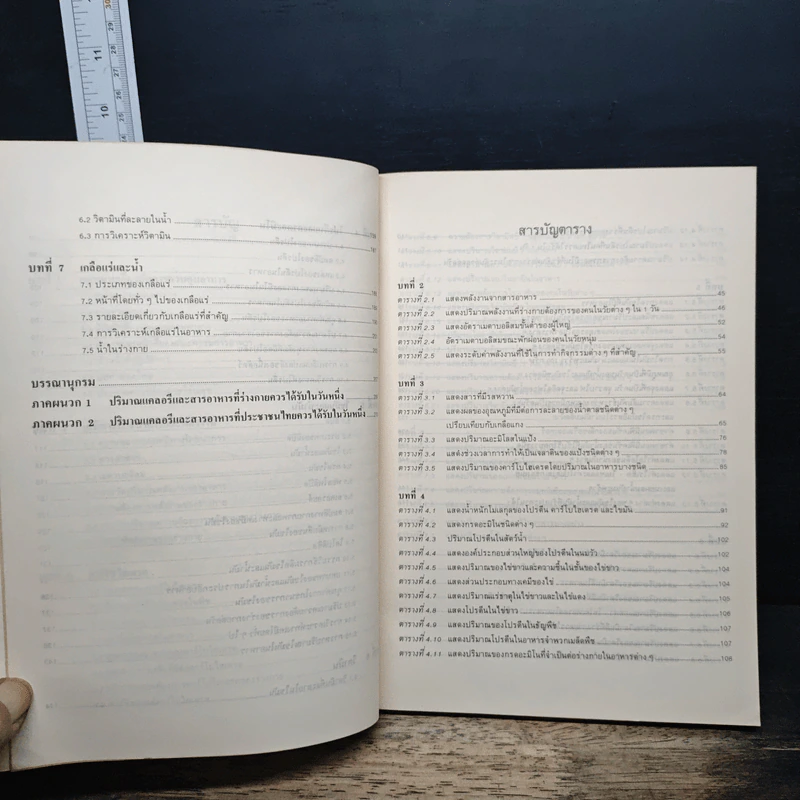 11
10
6.2 วิตามินที่ละลายในน้ำ
6.3 การวิเคราะห์วิตามิน
บทที่ 7 เกลือแร่และน้ำ
7.1 ประเภทของเกลือแร่
7.2 หน้าที่โดยทั่ว ๆ ไปของเกลือแร่
7.3 รายละเอียดเกี่ยวกับเกลือแร่ที่สำคัญ
7.4 การวิเคราะห์เกลือแร่ในอาหาร
7.5 น้ำในร่างกาย
บรรณานุกรม
ภาคผนวก 1 ปริมาณแคลอรีและสารอาหารที่ร่างกายควรได้รับในวันหนึ่ง
ภาคผนวก 2 ปริมาณแคลอรีและสารอาหารที่ประชาชนไทยควรได้รับในวันหนึ่ง
สารบัญตาราง
บทที่ 2
ตารางที่ 2.1 แสดงพลังงานจากสารอาหาร 45
ตารางที่ 2.2 แสดงปริมาณพลังงานที่ร่างกายต้องการของคนในวัยต่าง ๆ ใน 1 วัน 46
ตารางที่ 2.3 แสดงอัตราเมตาบอลิสมขั้นต่ำของผู้ใหญ่ 52
ตารางที่ 2.4 อัตราเมตาบอลิสมขณะพักผ่อนของคนในวัยหนุ่ม 54
ตารางที่ 2.5 แสดงระดับค่าพลังงานที่ใช้ในการทำกิจกรรมต่าง ๆ ที่สำคัญ 55
บทที่ 3
ตารางที่ 3.1 แสดงสารที่มีรสหวาน
ตารางที่ 3.2 แสดงผลของอุณหภูมิที่มีต่อการละลายของน้ำตาลชนิดต่าง ๆ
เปรียบเทียบกับเกลือแกง 65
ตารางที่ 3.3 แสดงปริมาณอะมิโลสในแป้ง 76
ตารางที่ 3.4 แสดงช่วงเวลาการทำให้เป็นเจลาตินของแป้งชนิดต่าง ๆ 78
ตารางที่ 3.5 แสดงปริมาณของคาร์โบไฮเดรตโดยปริมาณในอาหารบางชนิด
บทที่ 4
ตารางที่ 4.1 แสดงน้ำหนักโมเลกุลของโปรตีน คาร์โบไฮเดรต และไขมัน 91
ตารางที่ 4.2 แสดงกรดอะมิโนชนิดต่าง ๆ 92
ตารางที่ 4.3 ปริมาณโปรตีนในสัตว์น้ำ 102
ตารางที่ 4.4 แสดงองค์ประกอบส่วนใหญ่ของโปรตีนในนมวัว 102
ตารางที่ 4.5 แสดงปริมาณของไข่ขาวและความชื้นในชั้นของไข่ขาว
ตารางที่ 4.6 แสดงส่วนประกอบทางเคมีของไข่ 104
ตารางที่ 4.7 แสดงปริมาณแร่ธาตุในไข่ขาวและในไข่แดง
ตารางที่ 4.8 แสดงโปรตีนในไข่ขาว 106
ตารางที่ 4.9 แสดงปริมาณของโปรตีนในธัญพืช 107
ตารางที่ 4.10 แสดงปริมาณโปรตีนในอาหารจำพวกเมล็ดพืช 107
ตารางที่ 4.11 แสดงปริมาณของกรดอะมิโนที่จำเป็นต่อร่างกายในอาหารต่าง ๆ 108